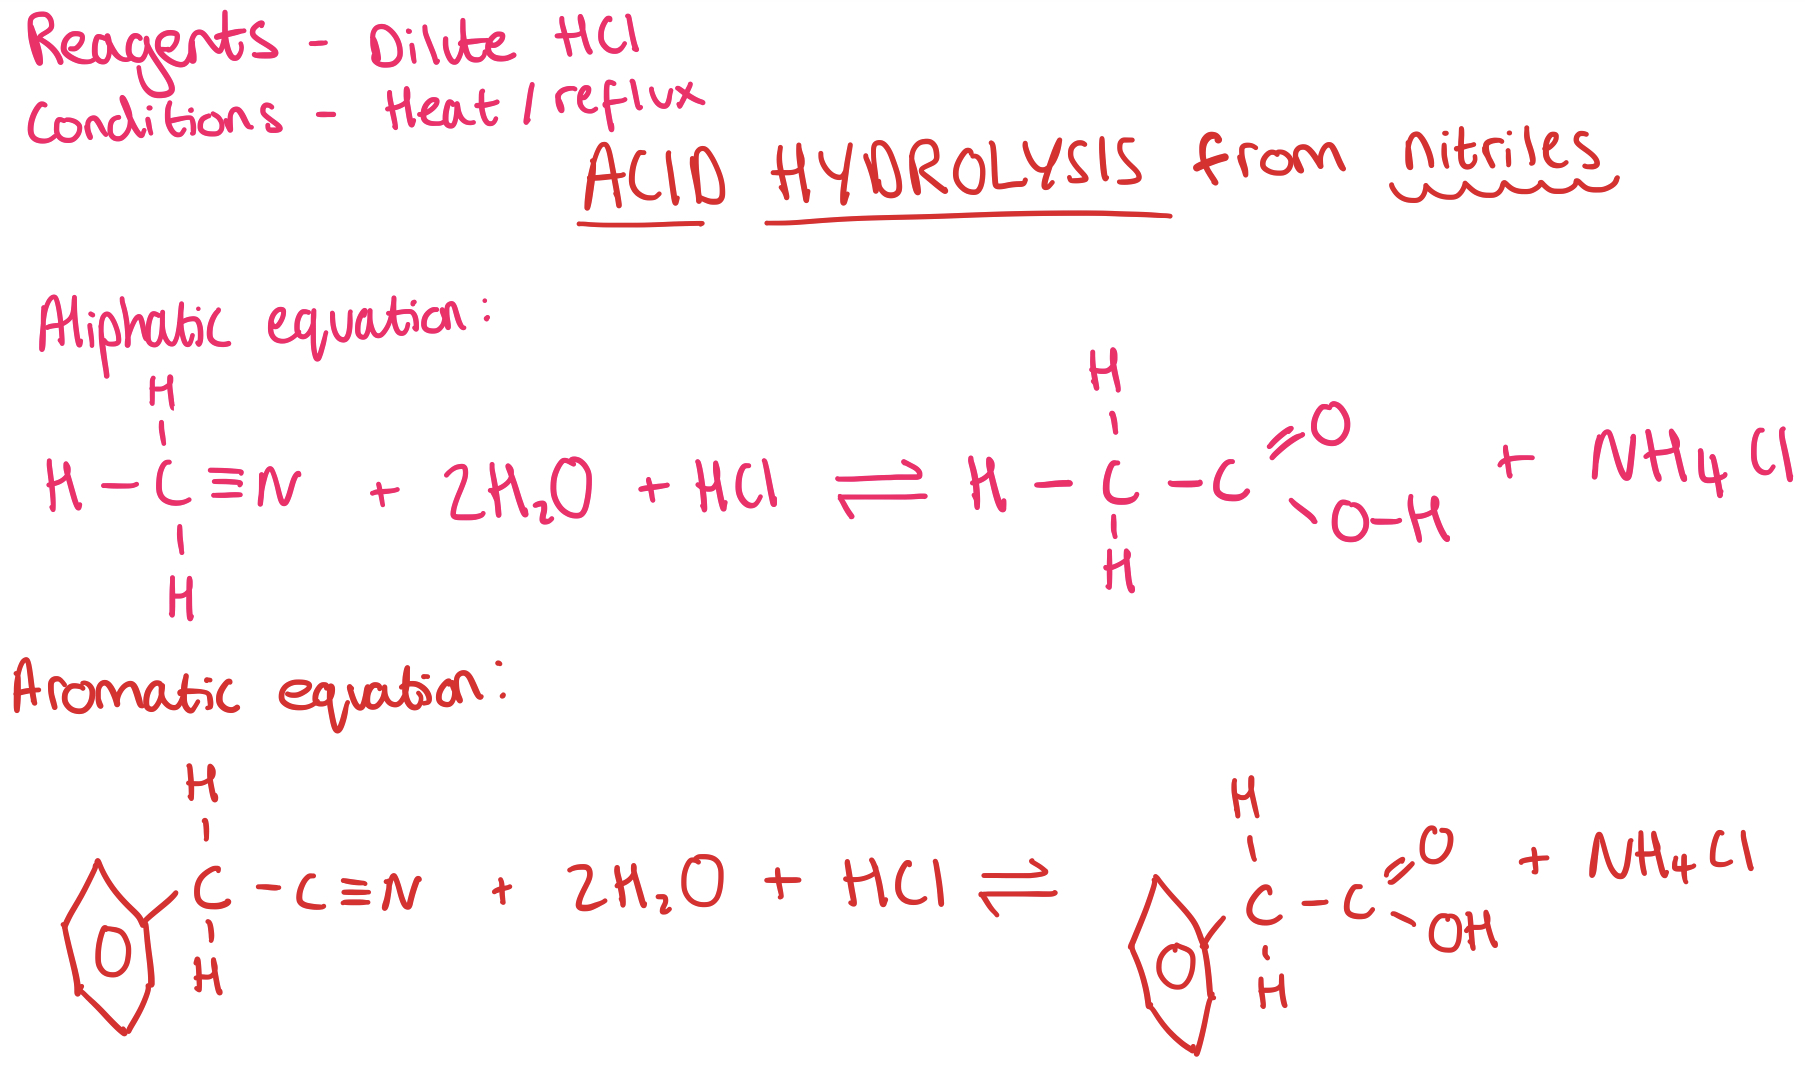 Reagents - Dilute HCl
Conditions - Heat / reflux
ACID HYDROLYSIS from nitriles
Aliphatic equation:
H
H - C ≡ N + 2H₂O + HCl ⇌ H - C - C = O + NH₄Cl
O - H
H
H
H
Aromatic equation:
H
C - C ≡ N + 2H₂O + HCl ⇌ C - C = O + NH₄Cl
OH
H
H
H